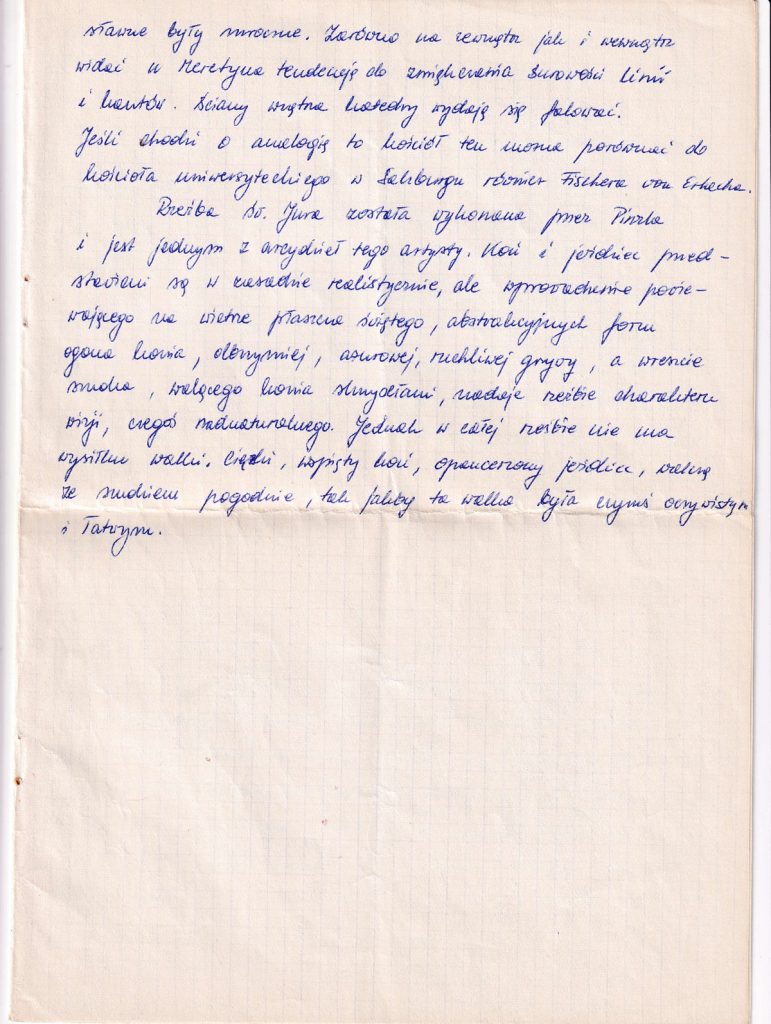 sławne były mroczne. Zarówno na zewnątrz jak i wewnątrz
widać u Meretyna tendencję do zmiękczenia surowości linii
i kantów. Ściany wnętrza katedry wydają się falować.
Jeśli chodzi o analogię to kościół ten można porównać do
kościoła uniwersyteckiego w Salzburgu również Fischera von Erlacha.
Rzeźba św. Jura została wykonana przez Pinzla
i jest jednym z arcydzieł tego artysty. Koń i jeździec przed-
stawieni są w zasadzie realistycznie, ale wprowadzenie powie-
wającego na wietrze płaszcza świętego, abstrakcyjnych form
ogona konia, olbrzymiej, ażurowej, ruchliwej grzywy, a wreszcie
smoka, walącego konia skrzydłami, nadaje rzeźbie charakteru
wizji, czegoś nadnaturalnego. Jednak w całej rzeźbie nie ma
wysiłku walki. Ciężki, wspięty koń, opancerzony jeździec, walczą
ze smokiem pogodnie, tak jakby ta walka była czymś oczywistym
i łatwym.